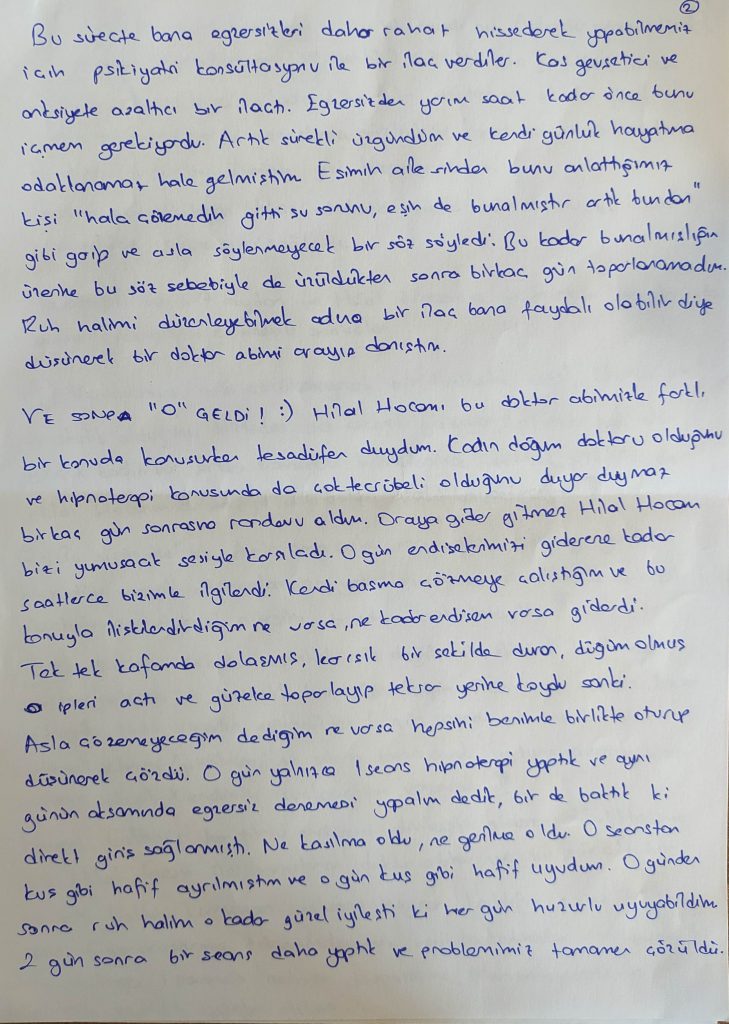 2
Bu süreçte bana egzersizleri daha rahat hissederek yapabilmemiz
için psikiyatri konsültasyonu ile bir ilaç verdiler. Kas gevşetici ve
anksiyete azaltıcı bir ilaçtı. Egzersizden yarım saat kadar önce bunu
içmem gerekiyordu. Artık sürekli üzgündüm ve kendi günlük hayatıma
odaklanamaz hale gelmiştim. Eşimin ailesinden bunu anlattığımız
kişi "hala çözemedin gitti şu sorunu, eşin de bunalmıştır artık bundan"
gibi garip ve asla söylenmeyecek bir söz söyledi. Bu kadar bunalmışlığın
üzerine bu söz sebebiyle de üzüldükten sonra birkaç gün toparlanamadım.
Ruh halimi düzenleyebilmek adına bir ilaç bana faydalı olabilir diye
düşünerek bir doktor abimi arayıp danıştım.
VE SONRA "O" GELDİ! :) Hilal Hocamı bu doktor abimizle farklı
bir konuda konuşurken tesadüfen duydum. Kadın doğum doktoru olduğunu
ve hipnoterapi konusunda da çok tecrübeli olduğunu duyar duymaz
birkaç gün sonrasına randevu aldım. Oraya gider gitmez Hilal Hocam
bizi yumuşacık sesiyle karşıladı. O gün endişelerimizi giderene kadar
saatlerce bizimle ilgilendi. Kendi başıma çözmeye çalıştığım ve bu
konuyla ilişkilendirdiğim ne varsa, ne kadar endişem varsa giderdi.
Tek tek kafamda dolaşmış, karışık bir şekilde duran, düğüm olmuş
ipleri açtı ve güzelce toparlayıp tekrar yerine koydu sanki.
Asla çözemeyeceğim dediğim ne varsa hepsini benimle birlikte oturup
düşünerek çözdü. O gün yalnızca 1 seans hipnoterapi yaptık ve aynı
günün akşamında egzersiz denemesi yapalım dedik, bir de baktık ki
direkt giriş sağlanmıştı. Ne kasılma oldu, ne gerilme oldu. O seanstan
kuş gibi hafif ayrılmıştım ve o gün kuş gibi hafif uyudum. O günden
sonra ruh halim o kadar güzel iyileşti ki her gün huzurlu uyuyabildim.
2 gün sonra bir seans daha yaptık ve problemimiz tamamen çözüldü.